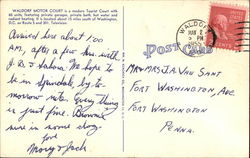 WALDORF MOTOR COURT is a modern Tourist Court with
40 units, featuring private garages, private bath, hot water and
radiant heating. It is located about 15 miles south of Washington,
D.C. on Route 5 and 301. Television
Post Card
WALDORF
MAR 2
PM
Arrived here about 1:00
A.M. after a few hrs with
J.B. & Sahara. We hope to
be in Ferndale, by to-
morrow nite. Everything
is just fine. Brownie
sure in some dog.
Love
Mary & Jack.
MR & MRS J.A. VAN SANT
FORT WASHINGTON AVE
FORT WASHINGTON
PENNA.